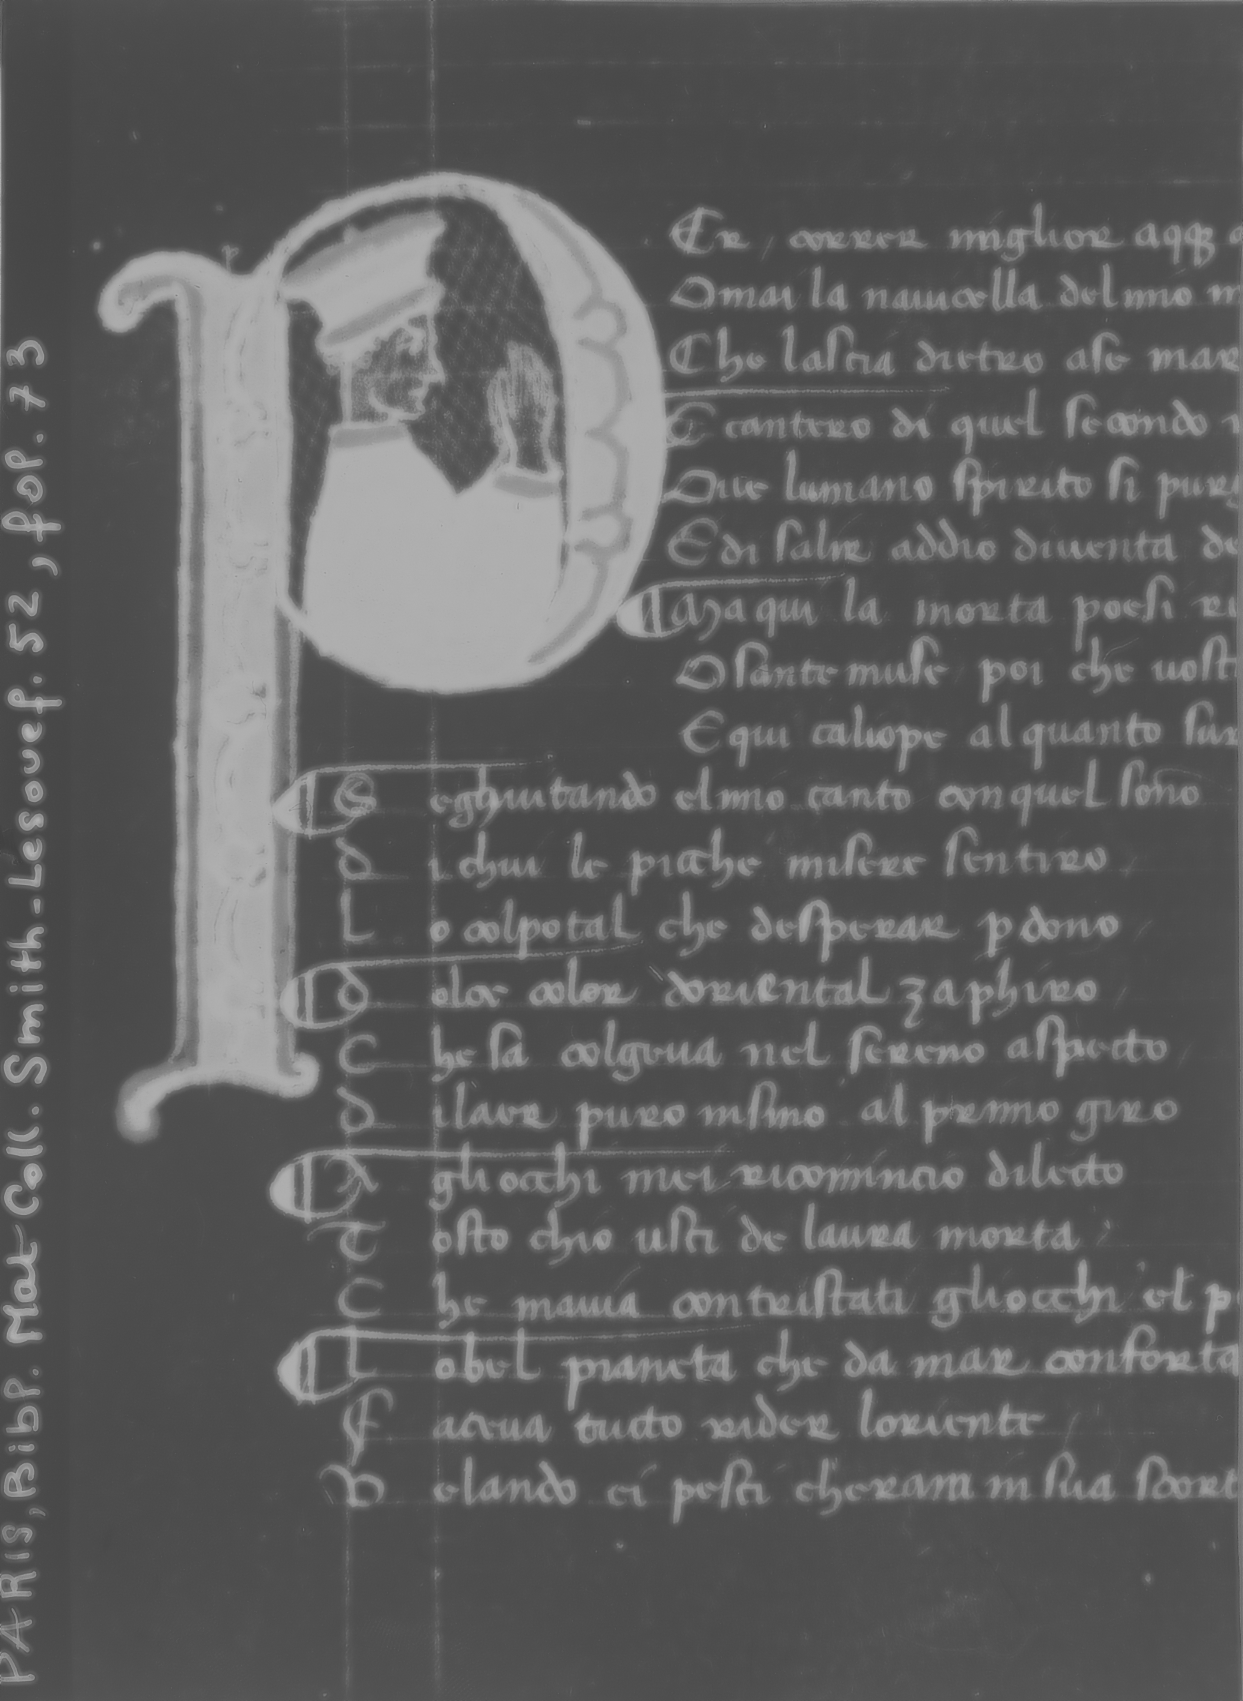 PARIS, Bibl. Nat Coll. Smith-Lesouef. 52, fol. 73
P
Er correr miglior aqq
Omai la nauicella del mio m
Che lascia dietro ase mar
E cantero di quel secondo
Oue lumano spirito si purg
E di salir addio diuenta de
Ma qui la morta poesi ri
O sante muse poi che uost
E qui caliope al quanto sur
S eghuitando elmio canto con quel sono
d i chui le piche misere sentiro
L o colpo tal che desperar pdono
d olce color doriental zaphiro
C he sa colgeua nel sereno aspecto
d ilaer puro insino al primo giro
A gli occhi mei ricomincio dilecto
T osto chio usci de laura morta
C he mauia contristati gliocchi el p
L o bel pianeta che da mar conforta
F aceua tucto rider loriente
V elando ei pesci cheram in sua scort